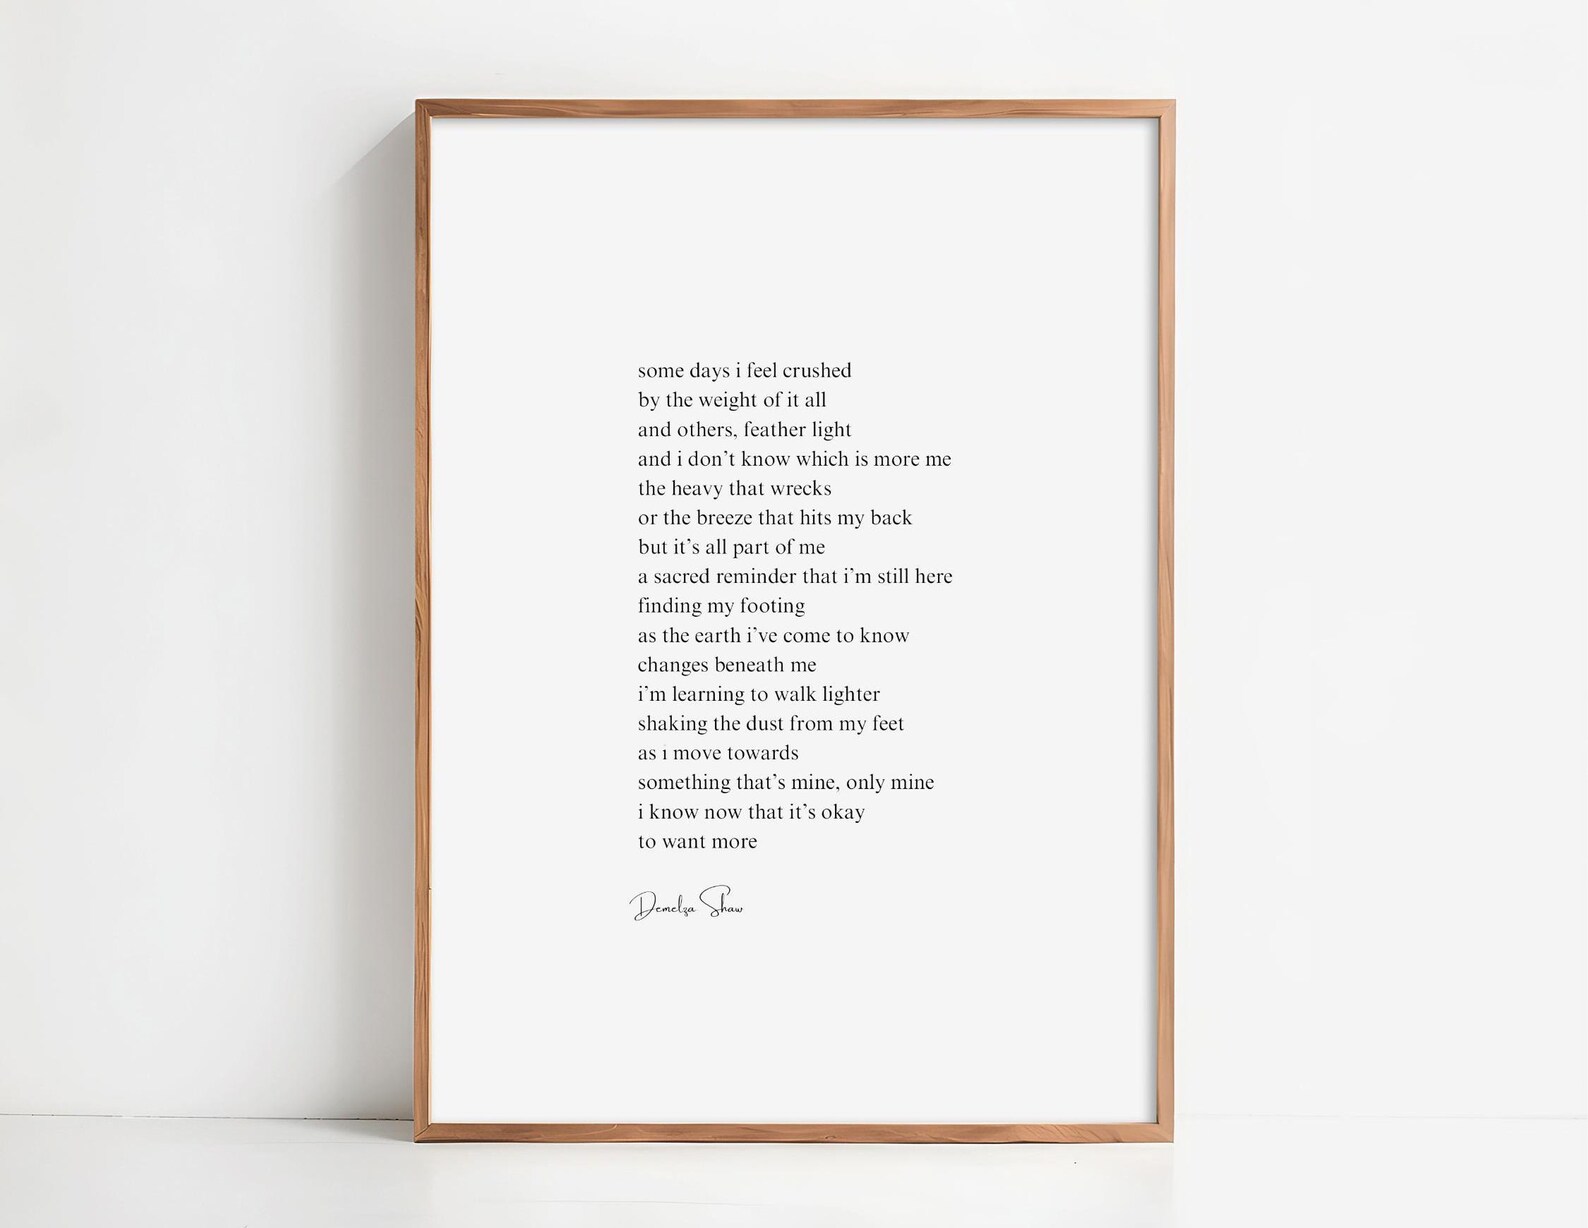 some days i feel crushed
by the weight of it all
and others, feather light
and i don’t know which is more me
the heavy that wrecks
or the breeze that hits my back
but it’s all part of me
a sacred reminder that i’m still here
finding my footing
as the earth i’ve come to know
changes beneath me
i’m learning to walk lighter
shaking the dust from my feet
as i move towards
something that’s mine, only mine
i know now that it’s okay
to want more
Demelza Shaw